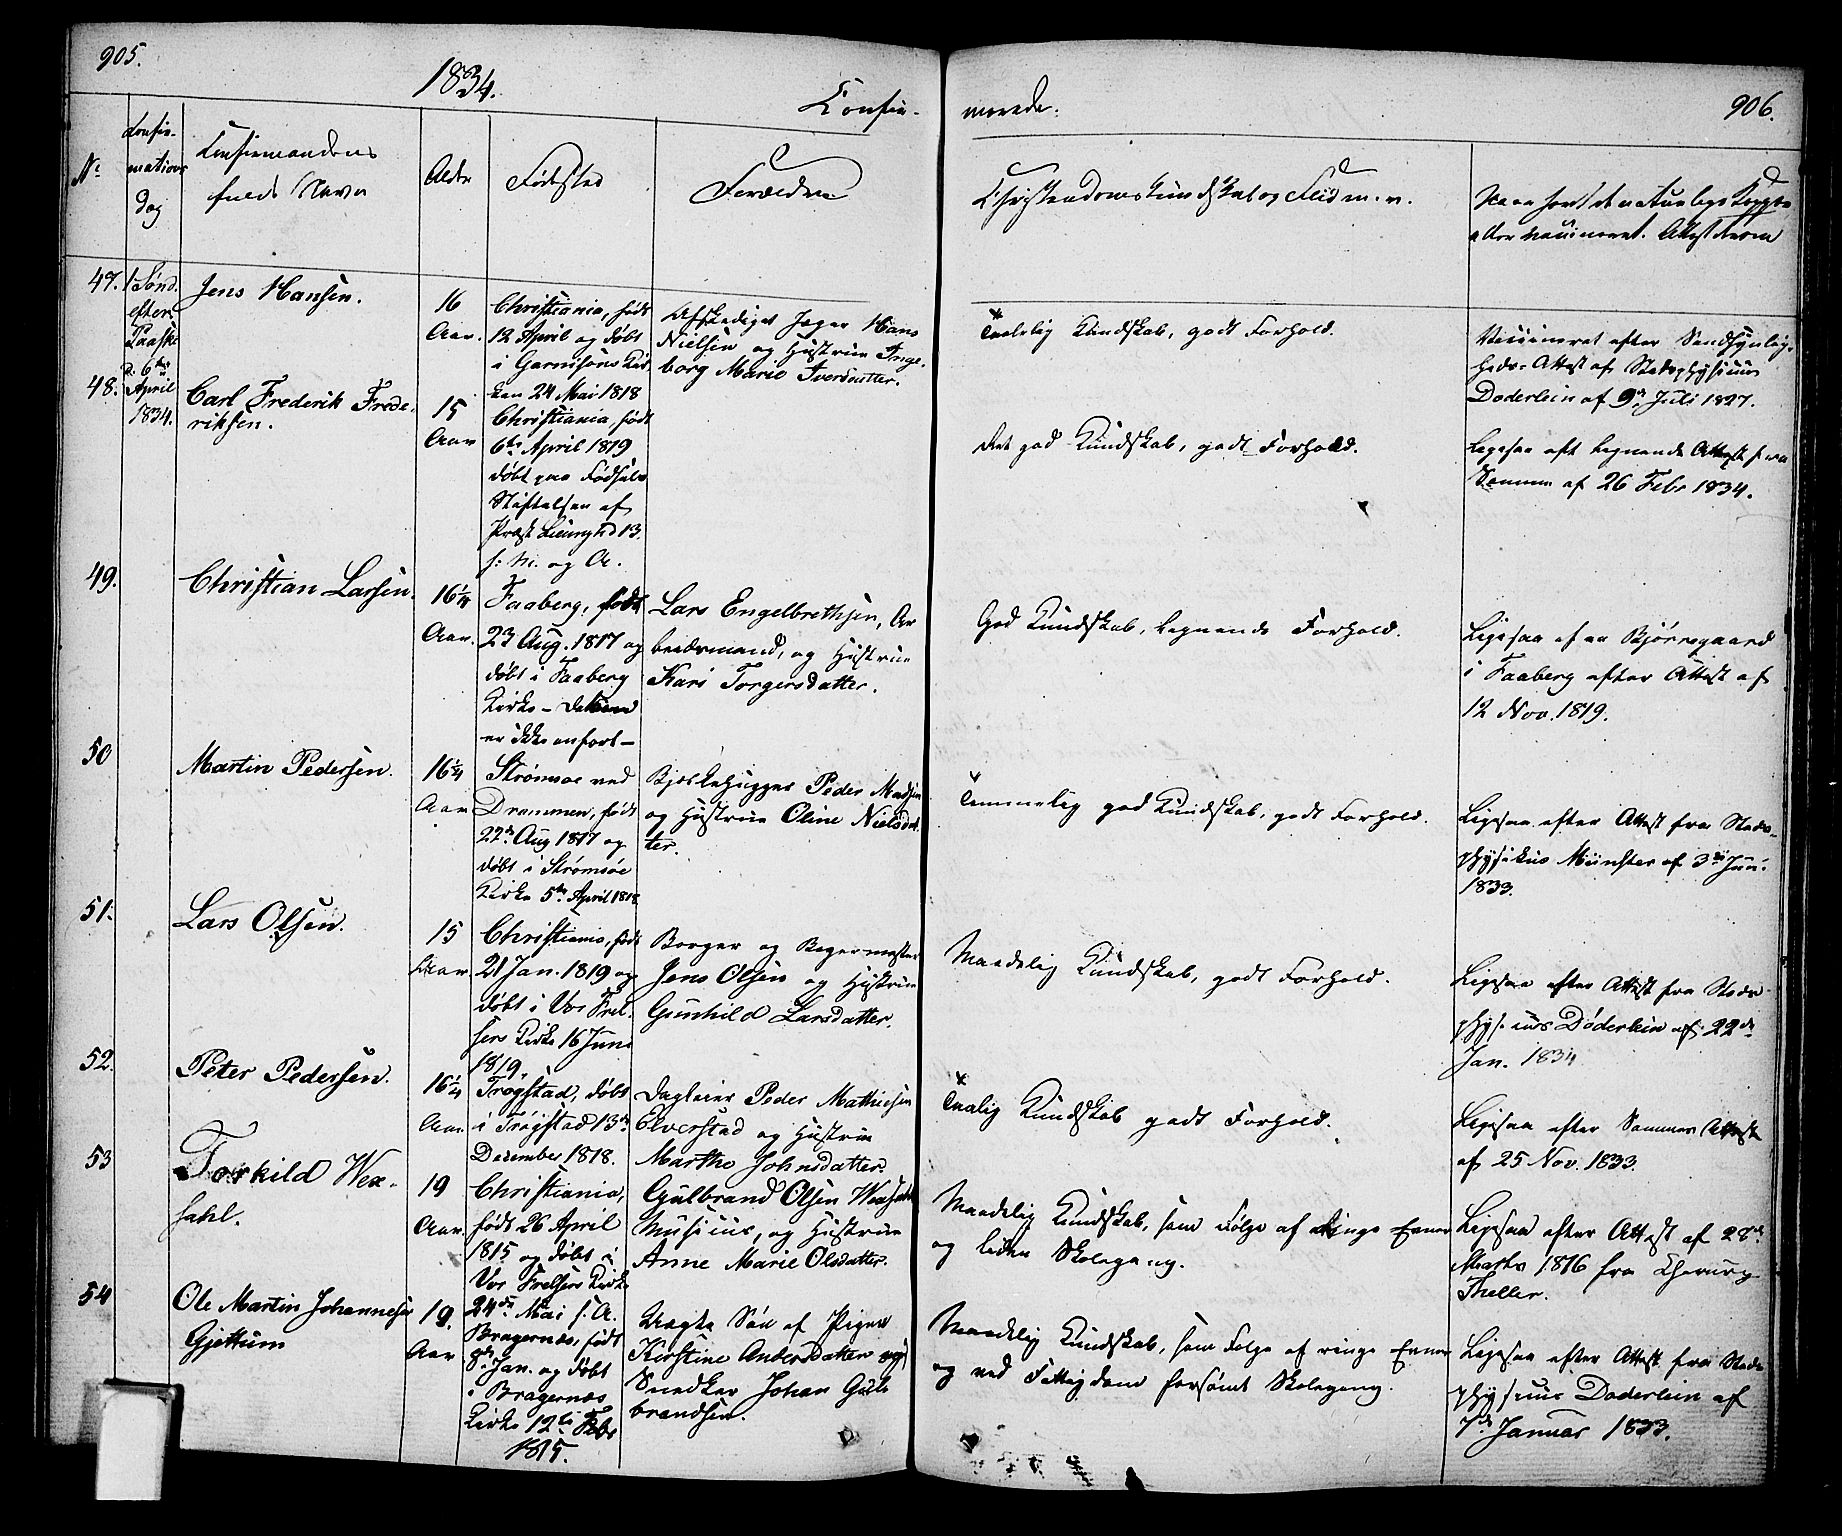 905.
1834.
Confir-
merede.
906.
No
Confir-
mations
dag
Confirmandens
fulde Navn
Alder
Fødested
Forældre
Christendomskundskab og Flid m. v.
Naar havt de naturlige Kopper
eller vaccineret. Attest derom
47.
1 Sønd.
efter
Paaske
d: 6te
April
1834.
Jens Hansen.
16
Aar.
Christiania, født
12 April og døbt
i Garnisons Kir
ken 24 Mai 1818
Afskediget Jæger Hans
Nielsen og Hustrue Inge
borg Marie Iversdatter.
Taalelig Kundskab, godt Forhold.
Vaccineret efter Sandsynlig-
heds-Attest af Stadsphysicus
Døderlein af 9de Juli 1827.
48.
Carl Frederik Frede-
riksen.
15
Aar
Christiania, født
6te April 1819
døbt paa Fødsels
Stiftelsen af
Præst Lumholtz 13
s: M. og A.
Ret god Kundskab, godt Forhold.
Ligesaa eft. lignende Attest fra
Samme af 26 Febr 1834.
49.
Christian Larsen.
16¼
Aar.
Faaberg, født
23 Aug. 1817 og
døbt i Faaberg
Kirke – Datum
er ikke anført –
Lars Engelbrethsen, Ar
beidsmand, og Hustrue
Kari Torgersdatter.
God Kundskab, lignende Forhold.
Ligesaa af Bjørnsgaard
i Faaberg efter Attest af
12 Nov. 1819.
50
Martin Pedersen.
16¼
Aar
Strømsøe ved
Drammen, født
22de Aug 1817 og
døbt i Strømsøe
Kirke 5te April 1818.
Bjelkehugger Peder Madsen
og Hustrue Oline Nielsdat
ter.
Temmelig god Kundskab, godt Forhold.
Ligesaa efter Attest fra Stads-
physikus Münster af 3die Jun.
1833.
51.
Lars Olsen.
15
Aar
Christiania, født
21 Jan. 1819 og
døbt i Vor Frel-
sers Kirke 16 Juni
1819.
Borger og Bagermester
Jens Olsen og Hustrue
Gunhild Larsdatter.
Maadelig Kundskab, godt Forhold.
Ligesaa efter Attest fra Stads-
physicus Døderlein af 22de
Jan. 1834
52.
Peter Pedersen.
16¼
Aar
Trøgstad, døbt
i Trøgstad 13de
December 1818.
Dagleier Peder Mathiesen
Elverstad og Hustrue
Marthe Johnsdatter.
Taalig Kundskab godt Forhold.
Ligesaa efter Sammes Attest
af 25 Nov. 1833.
53
Torkild Wex-
sahl.
19
Aar
Christiania,
født 26 April
1815 og døbt i
Vor Frelsers Kirke
24de Mai s. A.
Gulbrand Olsen Wexsahl
Musicus, og Hustrue
Anne Marie Olsdatter.
Maadelig Kundskab, som Følge af ringe Evner
og liden Skolegang.
Ligesaa efter Attest af 28de
Marts 1816 fra Chirurg
Theller.
54
Ole Martin Johannesen
Gjettum
19.
Aar
Bragernæs, født
8de Jan. og døbt
i Bragernæs
Kirke 12te Febr
1815.
Uægte Søn af Pigen
Kirstine Andersdatter og
Snedker Johan Gul-
brandsen.
Maadelig Kundskab, som Følge af ringe Evner
og ved Fattigdom forsømt Skolegang.
Ligesaa efter Attest fra Stads
physicus Døderlein af
7de Januar 1833.